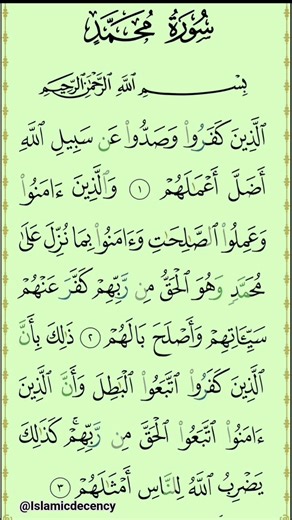 سُورَةُ مُحَمَّدٍ
بِسْمِ ٱللَّهِ ٱلرَّحْمَٰنِ ٱلرَّحِيمِ
ٱلَّذِينَ كَفَرُوا۟ وَصَدُّوا۟ عَن سَبِيلِ ٱللَّهِ
أَضَلَّ أَعْمَٰلَهُمْ ١ وَٱلَّذِينَ ءَامَنُوا۟
وَعَمِلُوا۟ ٱلصَّٰلِحَٰتِ وَءَامَنُوا۟ بِمَا نُزِّلَ عَلَىٰ
مُحَمَّدٍ وَهُوَ ٱلْحَقُّ مِن رَّبِّهِمْ كَفَّرَ عَنْهُمْ
سَيِّـَٔاتِهِمْ وَأَصْلَحَ بَالَهُمْ ٢ ذَٰلِكَ بِأَنَّ
ٱلَّذِينَ كَفَرُوا۟ ٱتَّبَعُوا۟ ٱلْبَٰطِلَ وَأَنَّ ٱلَّذِينَ
ءَامَنُوا۟ ٱتَّبَعُوا۟ ٱلْحَقَّ مِن رَّبِّهِمْ ۚ كَذَٰلِكَ
يَضْرِبُ ٱللَّهُ لِلنَّاسِ أَمْثَٰلَهُمْ ٣
@Islamicdecency